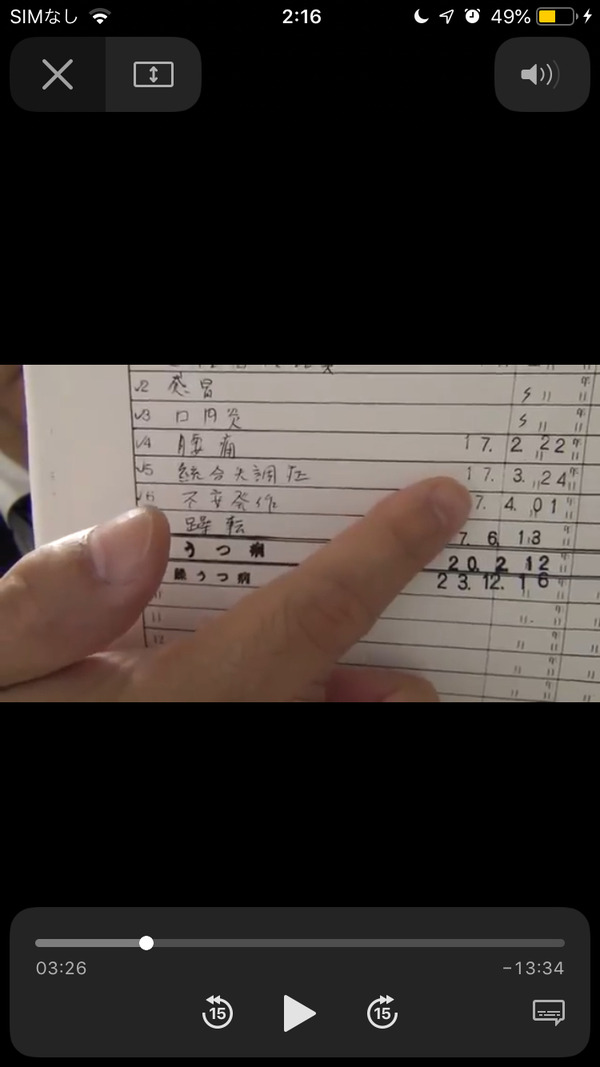 SIMなし 2:16 49%
√2 感冒 5 〃 年〃
√3 口内炎 5 〃 年〃
√4 腰痛 17. 2 22
√5 統合失調症 17. 3. 24
√6 不安発作 7. 4. 01
躁転 7. 6 13
うつ病 20. 2 12
躁うつ病 23. 12. 16
11
12
03:26 −13:34
15 15